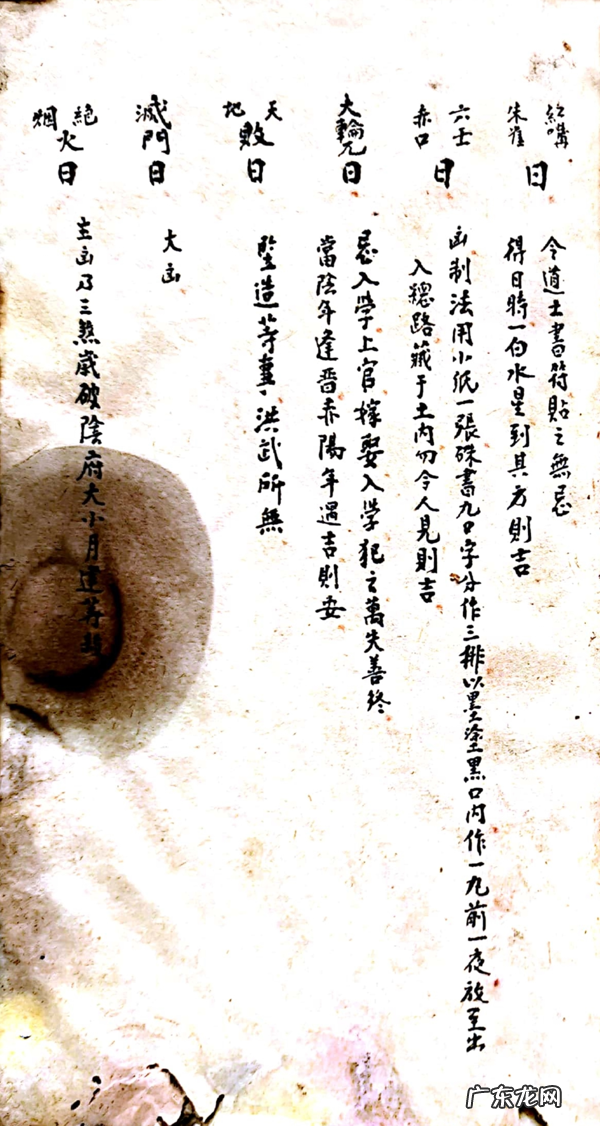 紅嘴
朱雀
日
令道士書符貼之無忌
得日時一白水星到其方則吉
六壬
赤口
日
凶制法用小紙一張硃書九口字分作三排以墨塗黑口內作一九前一夜放至出
入穩路藏于土內勿令人見則吉
大輪
日
忌入学上官嫁娶入學犯之萬失善终
當陰年逢晋赤陽年遇吉則安
天
地
敗
日
竪造等妻洪武所無
滅門
日
大凶
絕
烟
火
日
主凶乃三煞歲破陰府大小月建等
广东龙网